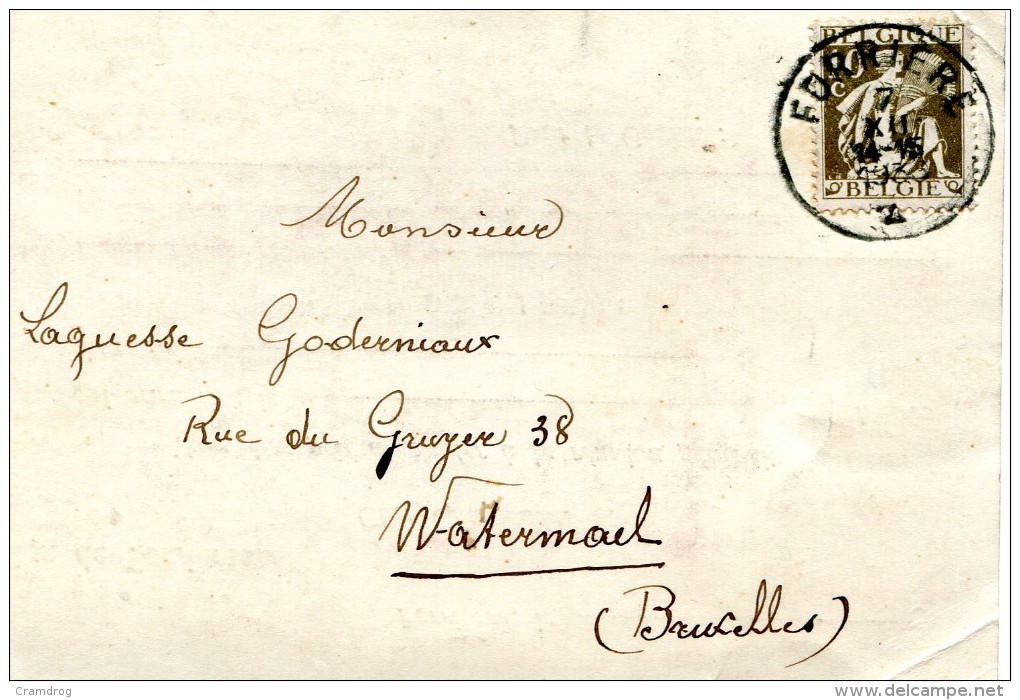 BELGIQUE
10
C
BELGIE
FORRIERE
7
XII
14-15
2
Monsieur
Laguesse Goderniaux
Rue du Gruyer 38
Watermael
(Bruxelles)
Cramdrog
www.delcampe.net